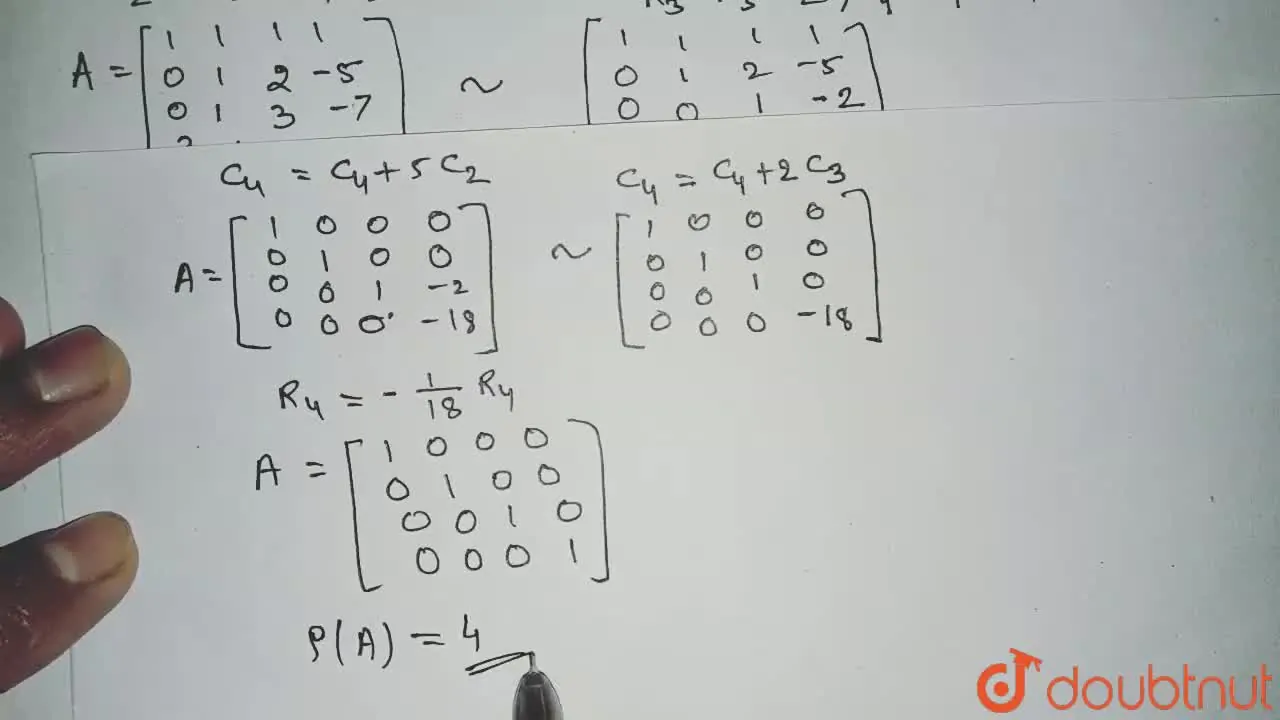 A = [ 1 1 1 1 ~ [ 1 1 1 1
0 1 2 -5 0 1 2 -5
0 1 3 -7 ] 0 0 1 -2 ]
C4 = C4 + 5 C2 C4 = C4 + 2 C3
A = [ 1 0 0 0 ~ [ 1 0 0 0
0 1 0 0 0 1 0 0
0 0 1 -2 0 0 1 0
0 0 0 -18 ] 0 0 0 -18 ]
R4 = - 1/18 R4
A = [ 1 0 0 0
0 1 0 0
0 0 1 0
0 0 0 1 ]
ρ(A) = 4
doubtnut